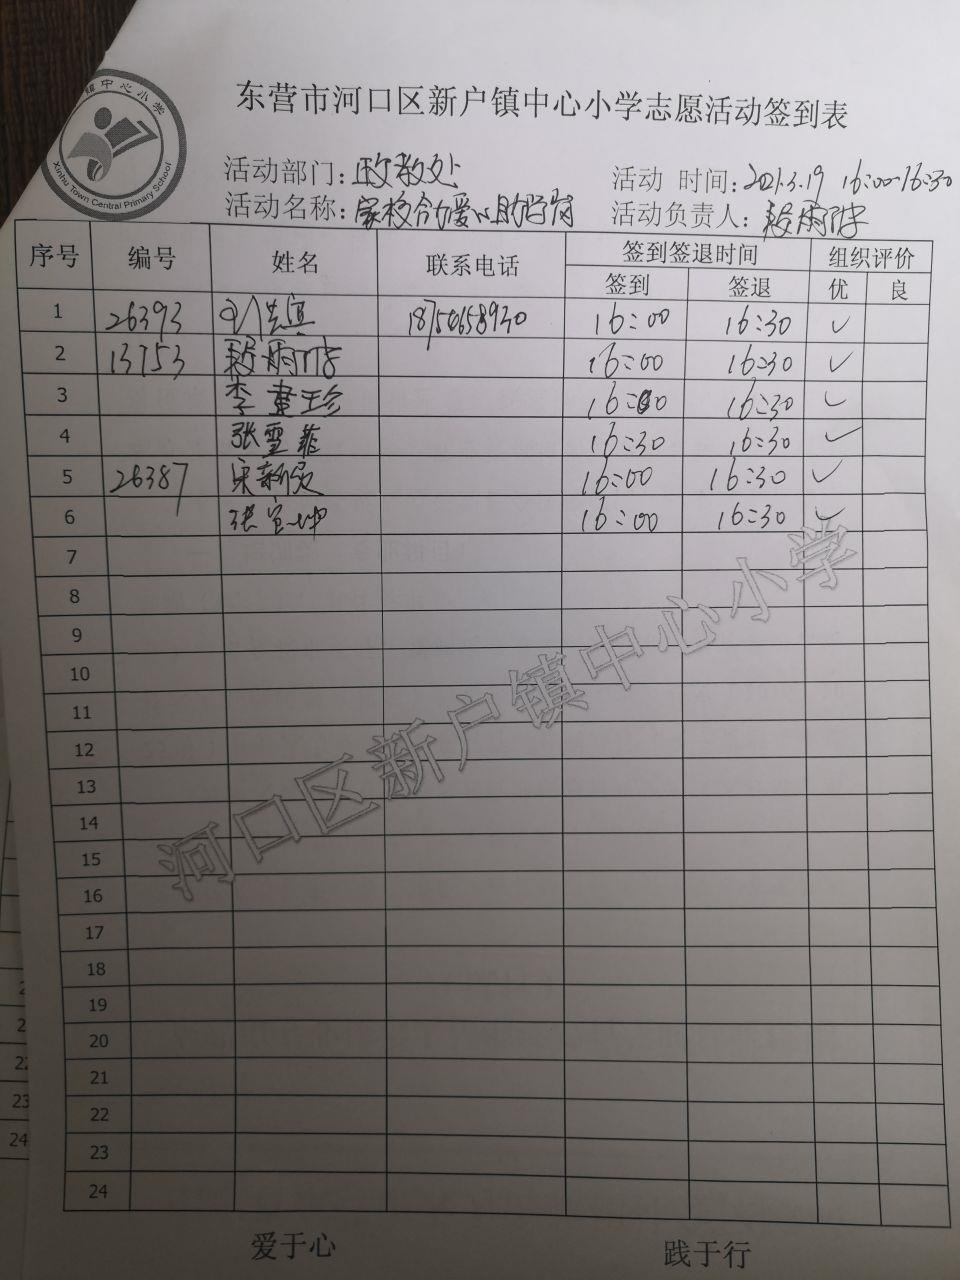 镇中心小学
Xinhu Town Central Primary School
东营市河口区新户镇中心小学志愿活动签到表
活动部门：政教处 活动 时间：2021.3.19 16:00-16:30
活动名称：家校合力爱心助学岗 活动负责人：
序号 编号 姓名 联系电话 签到签退时间 组织评价
签到 签退 优 良
1 26393 18750658930 16:00 16:30 ✓
2 13753 16:00 16:30 ✓
3 16:00 16:30 ✓
4 张雪菲 16:30 16:30 ✓
5 26387 16:00 16:30 ✓
6 16:00 16:30 ✓
7
8
9
10
11
12
13
14
15
16
17
18
19
20
21
22
23
24
河口区新户镇中心小学
爱于心 践于行
22
23
24